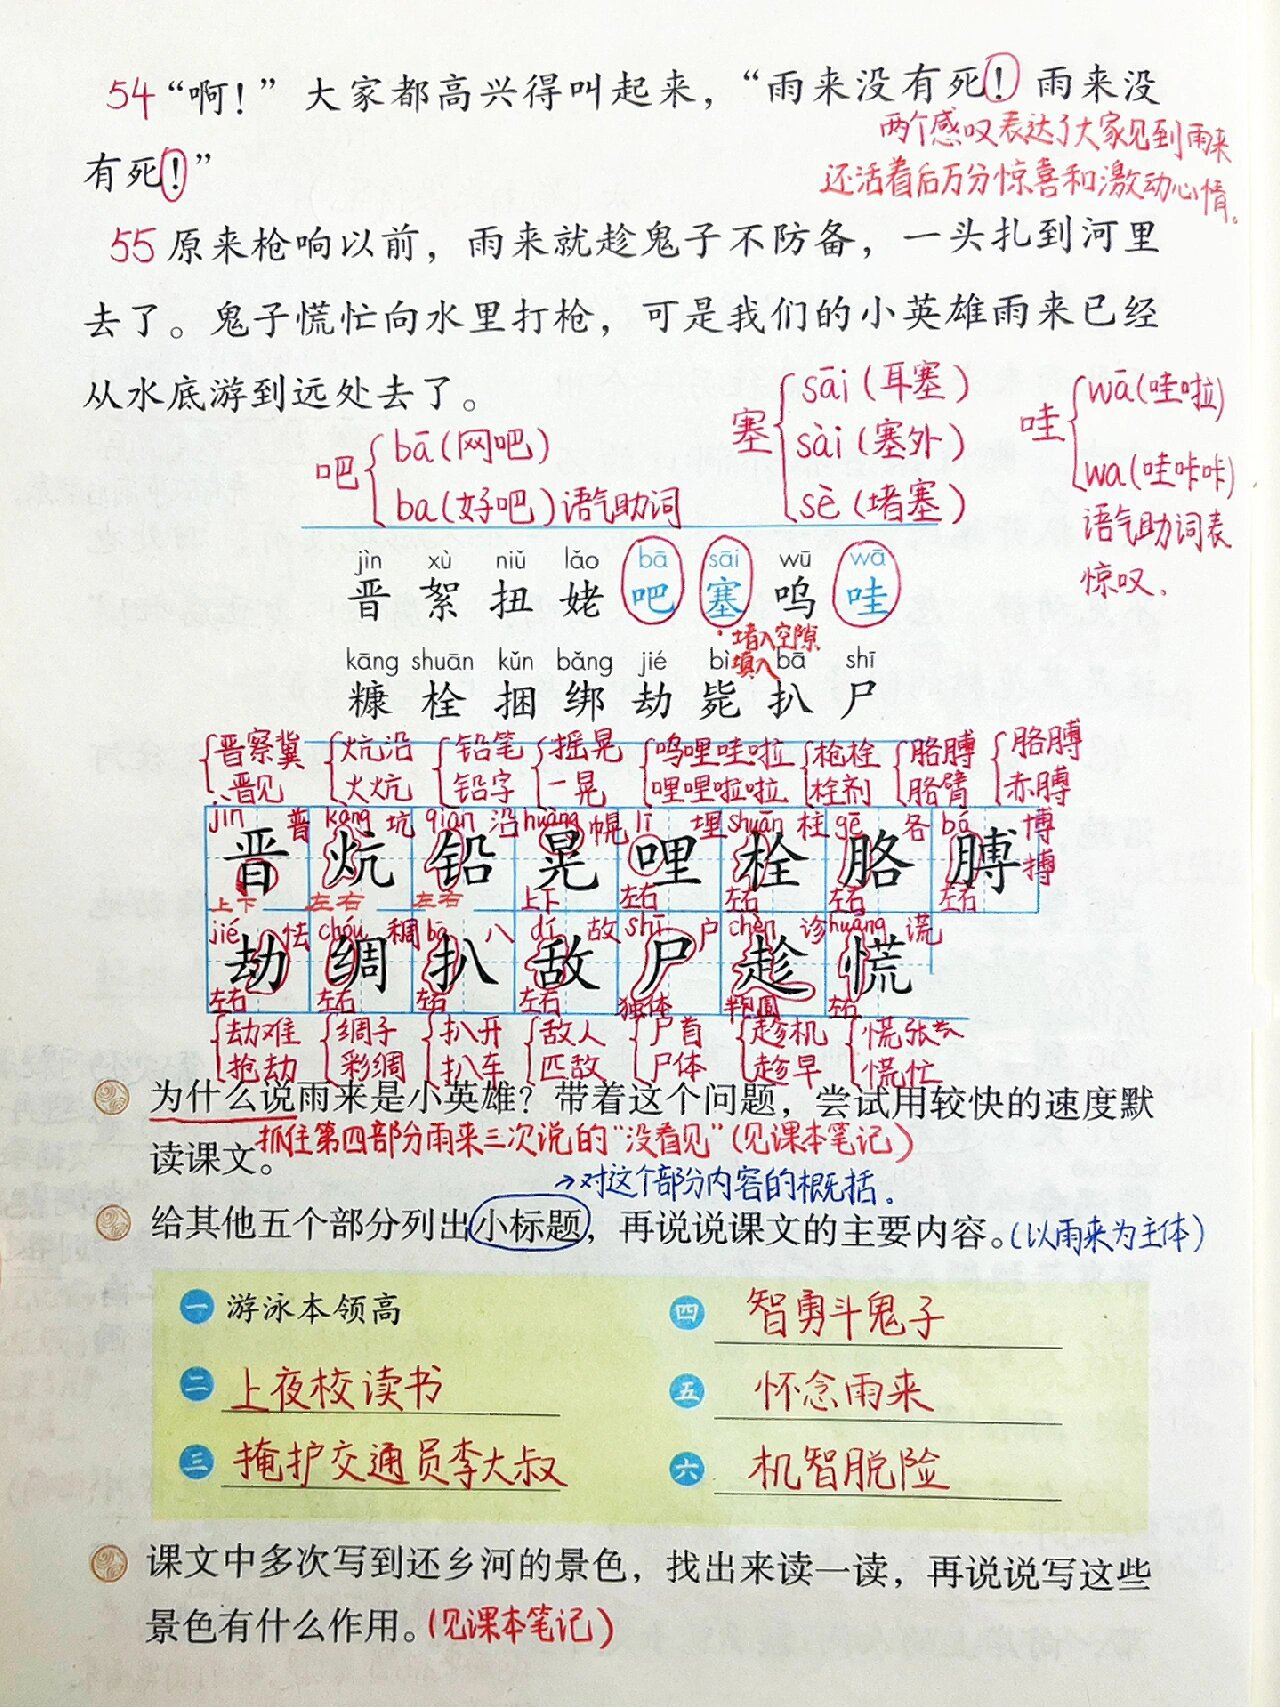 54“啊！”大家都高兴得叫起来，“雨来没有死！雨来没
两个感叹表达了大家见到雨来
有死！”
还活着后万分惊喜和激动心情。
55原来枪响以前，雨来就趁鬼子不防备，一头扎到河里
去了。鬼子慌忙向水里打枪，可是我们的小英雄雨来已经
从水底游到远处去了。
吧 bā(网吧)
ba(好吧)语气助词
塞 sāi(耳塞)
sài(塞外)
sè(堵塞)
哇 wā(哇啦)
wa(哇咔咔)
语气助词表
惊叹。
jìn xù niǔ lǎo bā sāi wū wā
晋 絮 扭 姥 吧 塞 呜 哇
堵入空隙
填入
kāng shuān kǔn bǎng jié bì bā shī
糠 栓 捆 绑 劫 毙 扒 尸
晋察冀 炕沿 铅笔 摇晃 呜哩哇啦 枪栓 胳膊 胳膊
晋见 火炕 铅字 一晃 哩哩啦啦 栓剂 胳臂 赤膊
jìn 普 kàng 坑 qiān 沿 huàng 幌 lī 埋 shuān 柱 gē 各 bó 博
搏
晋 炕 铅 晃 哩 栓 胳 膊
上下 左右 左右 上下 左右 左右 左右 左右
jié 怯 chóu 稠 bā 八 dí 故 shī 户 chèn 诊 huāng 谎
劫 绸 扒 敌 尸 趁 慌
左右 左右 左右 左右 独体 半包围 左右
劫难 绸子 扒开 敌人 尸首 趁机 慌张
抢劫 彩绸 扒车 匹敌 尸体 趁早 慌忙
为什么说雨来是小英雄？带着这个问题，尝试用较快的速度默
读课文。
抓住第四部分雨来三次说的“没看见”(见课本笔记)
→对这个部分内容的概括。
给其他五个部分列出小标题，再说说课文的主要内容。(以雨来为主体)
一 游泳本领高
四 智勇斗鬼子
二 上夜校读书
五 怀念雨来
三 掩护交通员李大叔
六 机智脱险
课文中多次写到还乡河的景色，找出来读一读，再说说写这些
景色有什么作用。(见课本笔记)